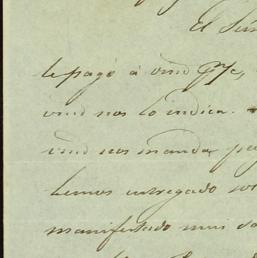 El Señ
le pagó à vmd Pte,
vmd nos lo indica.
vmd nos manda pa
hemos entregado
manifestado